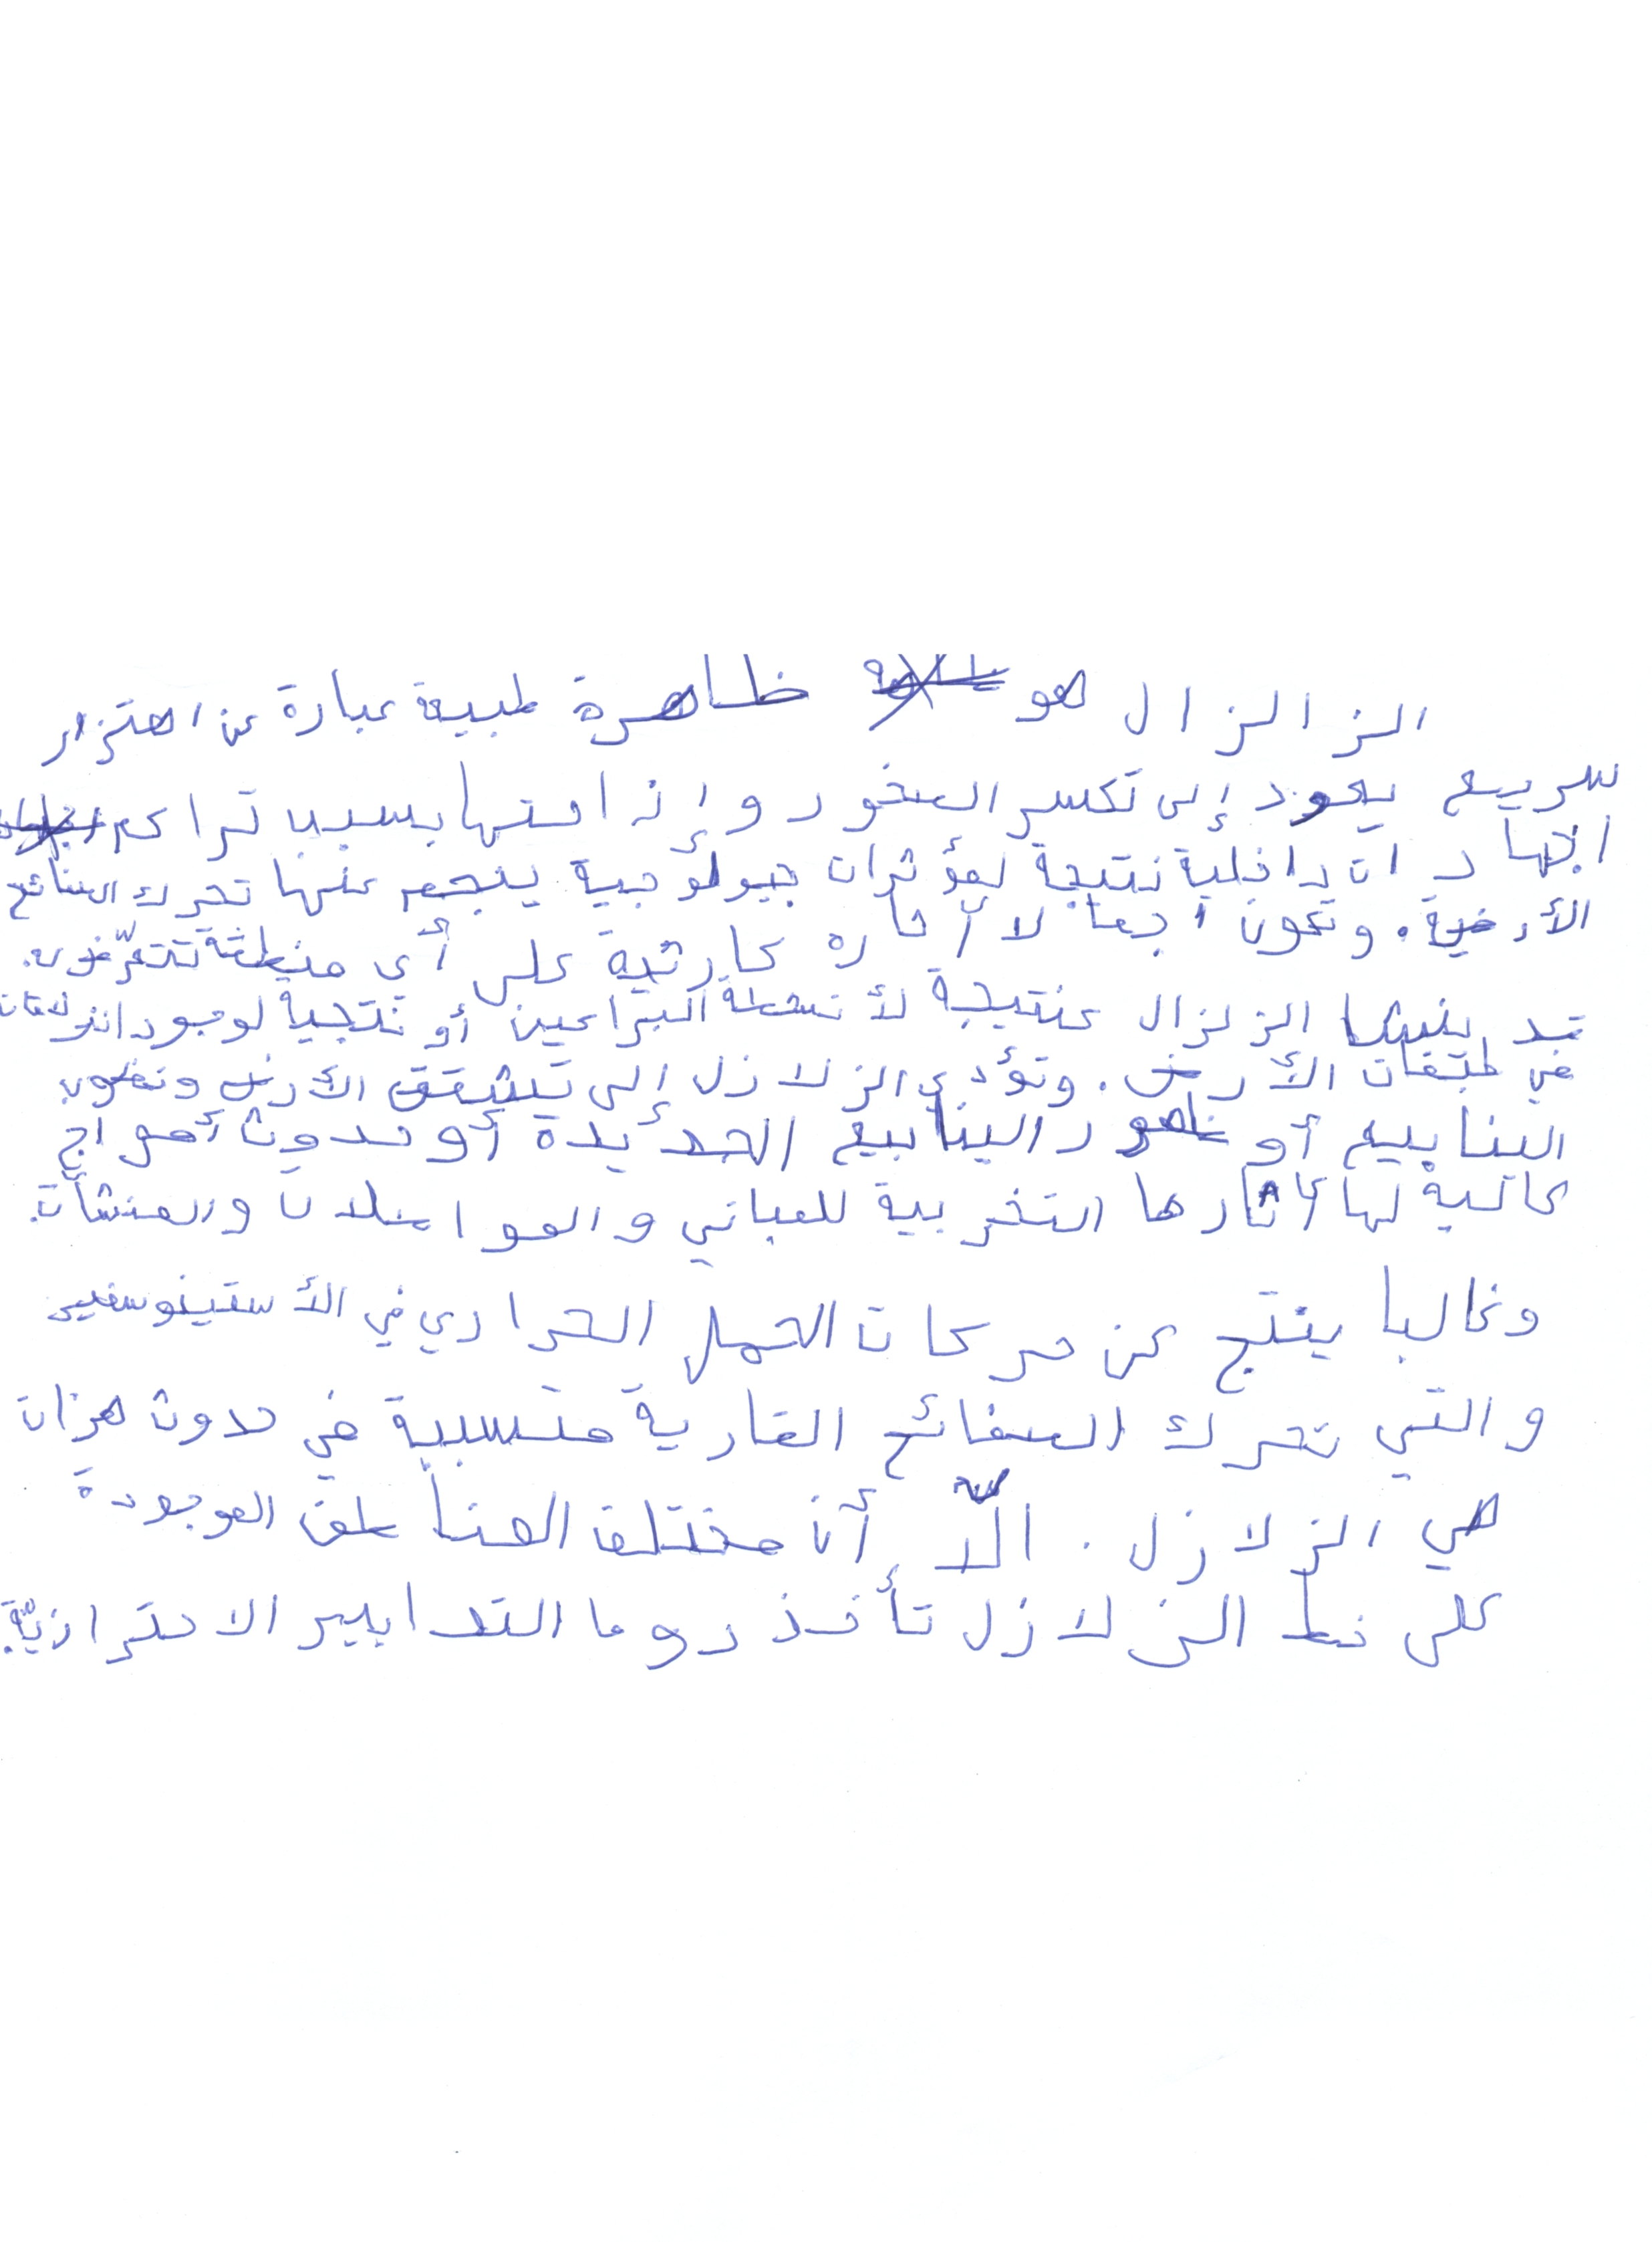 الزالزال هو ظاهرة طبيعة عبارة عن اهتزاز
سريع يعود إلى تكسر الصخور وإزاحتها بسبب تراكم
اجهادات داخلية نتيجة لمؤثرات جيولوجية ينجم عنها تحرك الصفائح
الأرضية. وتكون لا آثاره كارثية على أي منطقة تتعرّض له.
قد ينشأ الزلزال كنتيجة لأنشطة البراكين أو نتجية لوجود انزلاقات
في طبقات الأرض. وتؤدي الزلازل إلى تشقق الأرض ونضوب
الينابيع أو ظهور الينابيع الجديدة أو حدوث أمواج
عالية لها آثارها التخربية للمباني والمواصلات والمنشآت.
وغالبا ينتج عن حركات الحمل الحراري في الأستينوسفير
والتي تحرك الصفائح القارية متسببة في حدوث هزات
هي الزلازل. الّا أن مختلف المناطق الموجودة
على خط الزلازل تأخذ دوما التدابير الاحترازيّة.